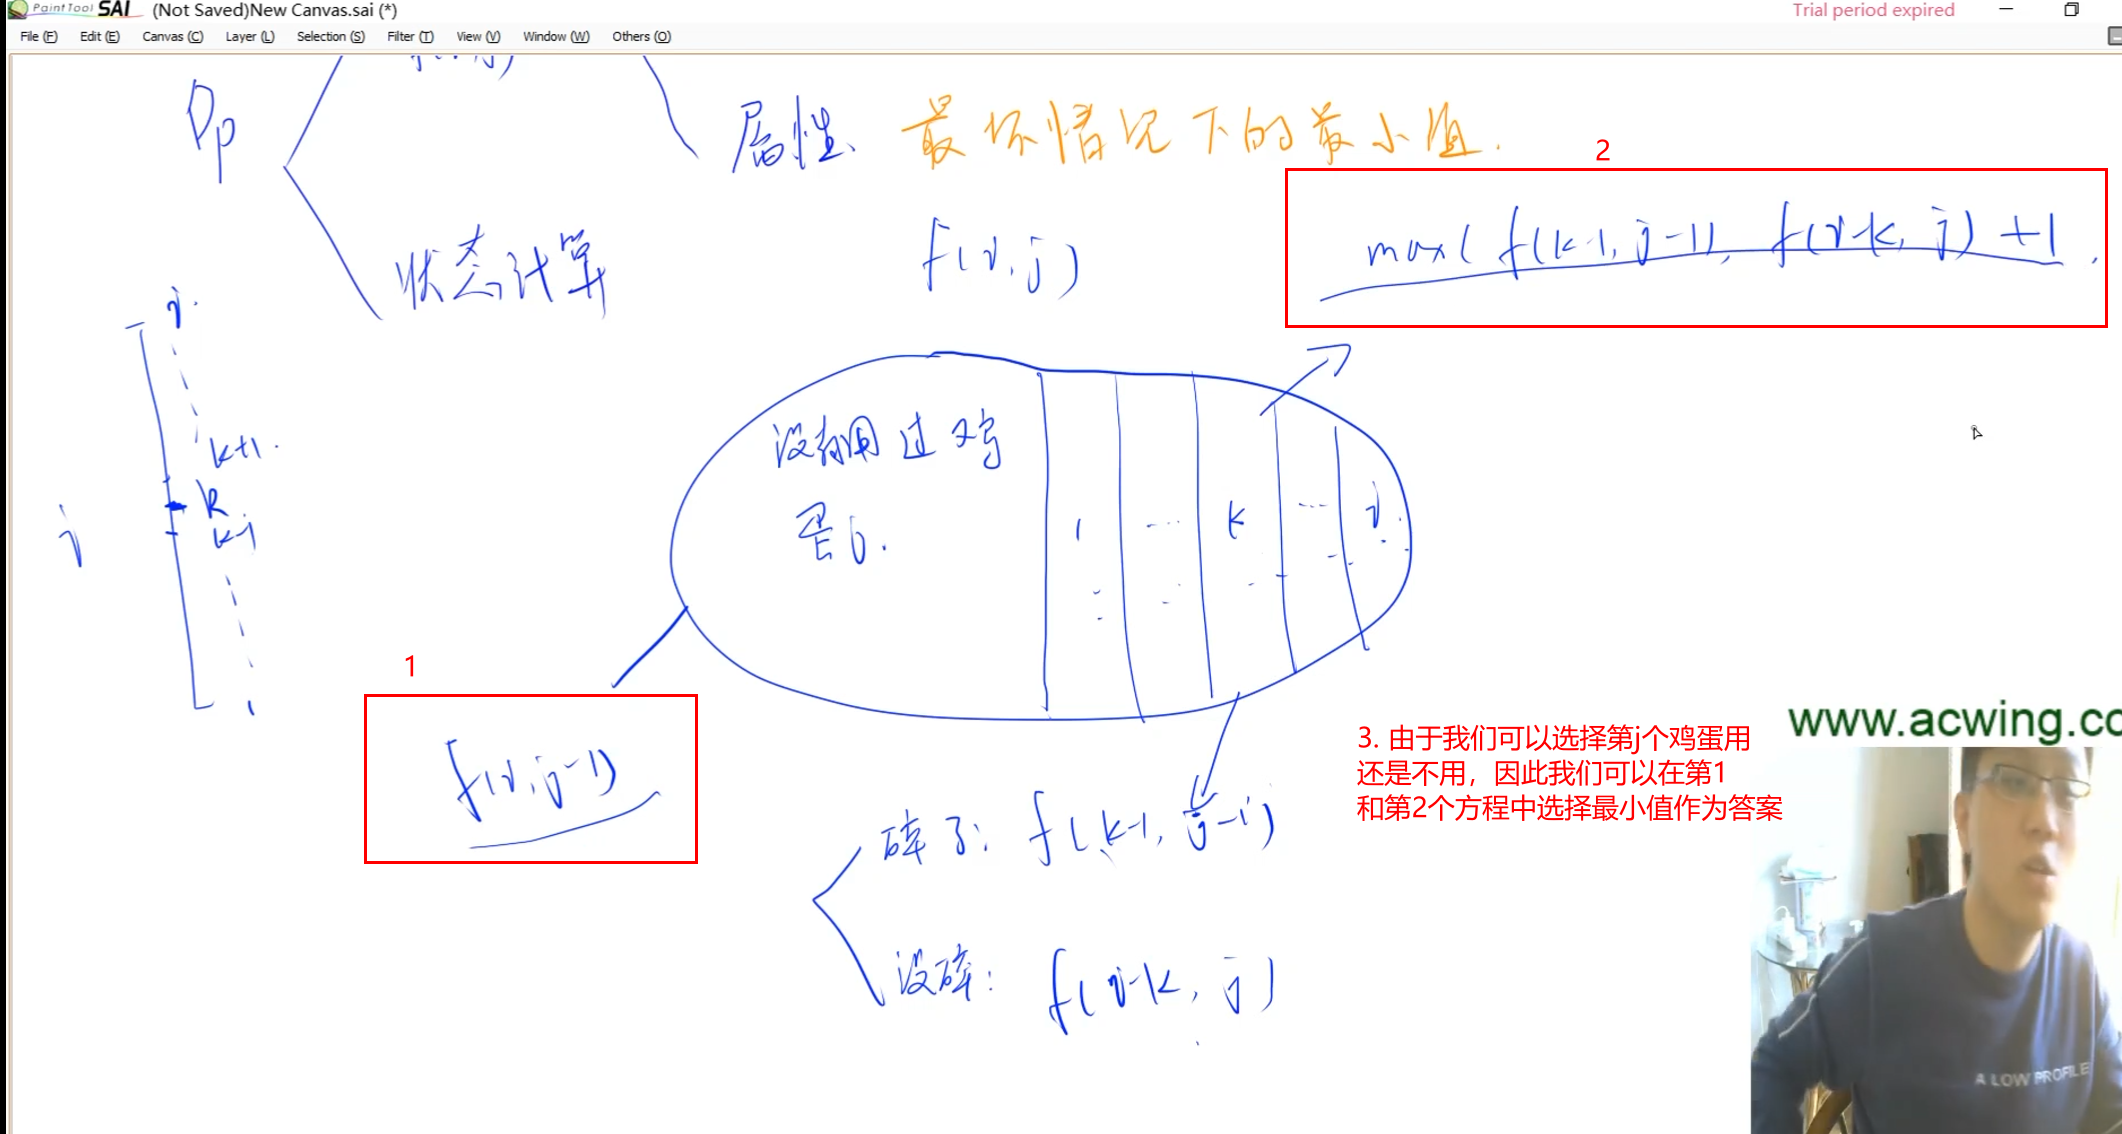 PaintTool SAI (Not Saved)New Canvas.sai (*)
Trial period expired
File (F) Edit (E) Canvas (C) Layer (L) Selection (S) Filter (T) View (V) Window (W) Others (O)
Dp
属性、最坏情况下的最小值.
2
状态计算
f(i,j)
max( f(k-1, j-1), f(i-k, j) +1
i
k+1
k
k-1
i
1
没有用过鸡
蛋j.
1 ... k ... i
1
f(i,j-1)
www.acwing.co
3. 由于我们可以选择第j个鸡蛋用
还是不用，因此我们可以在第1
和第2个方程中选择最小值作为答案
碎了: f(k-1, j-1)
没碎: f(i-k, j)
A LOW PROFILE